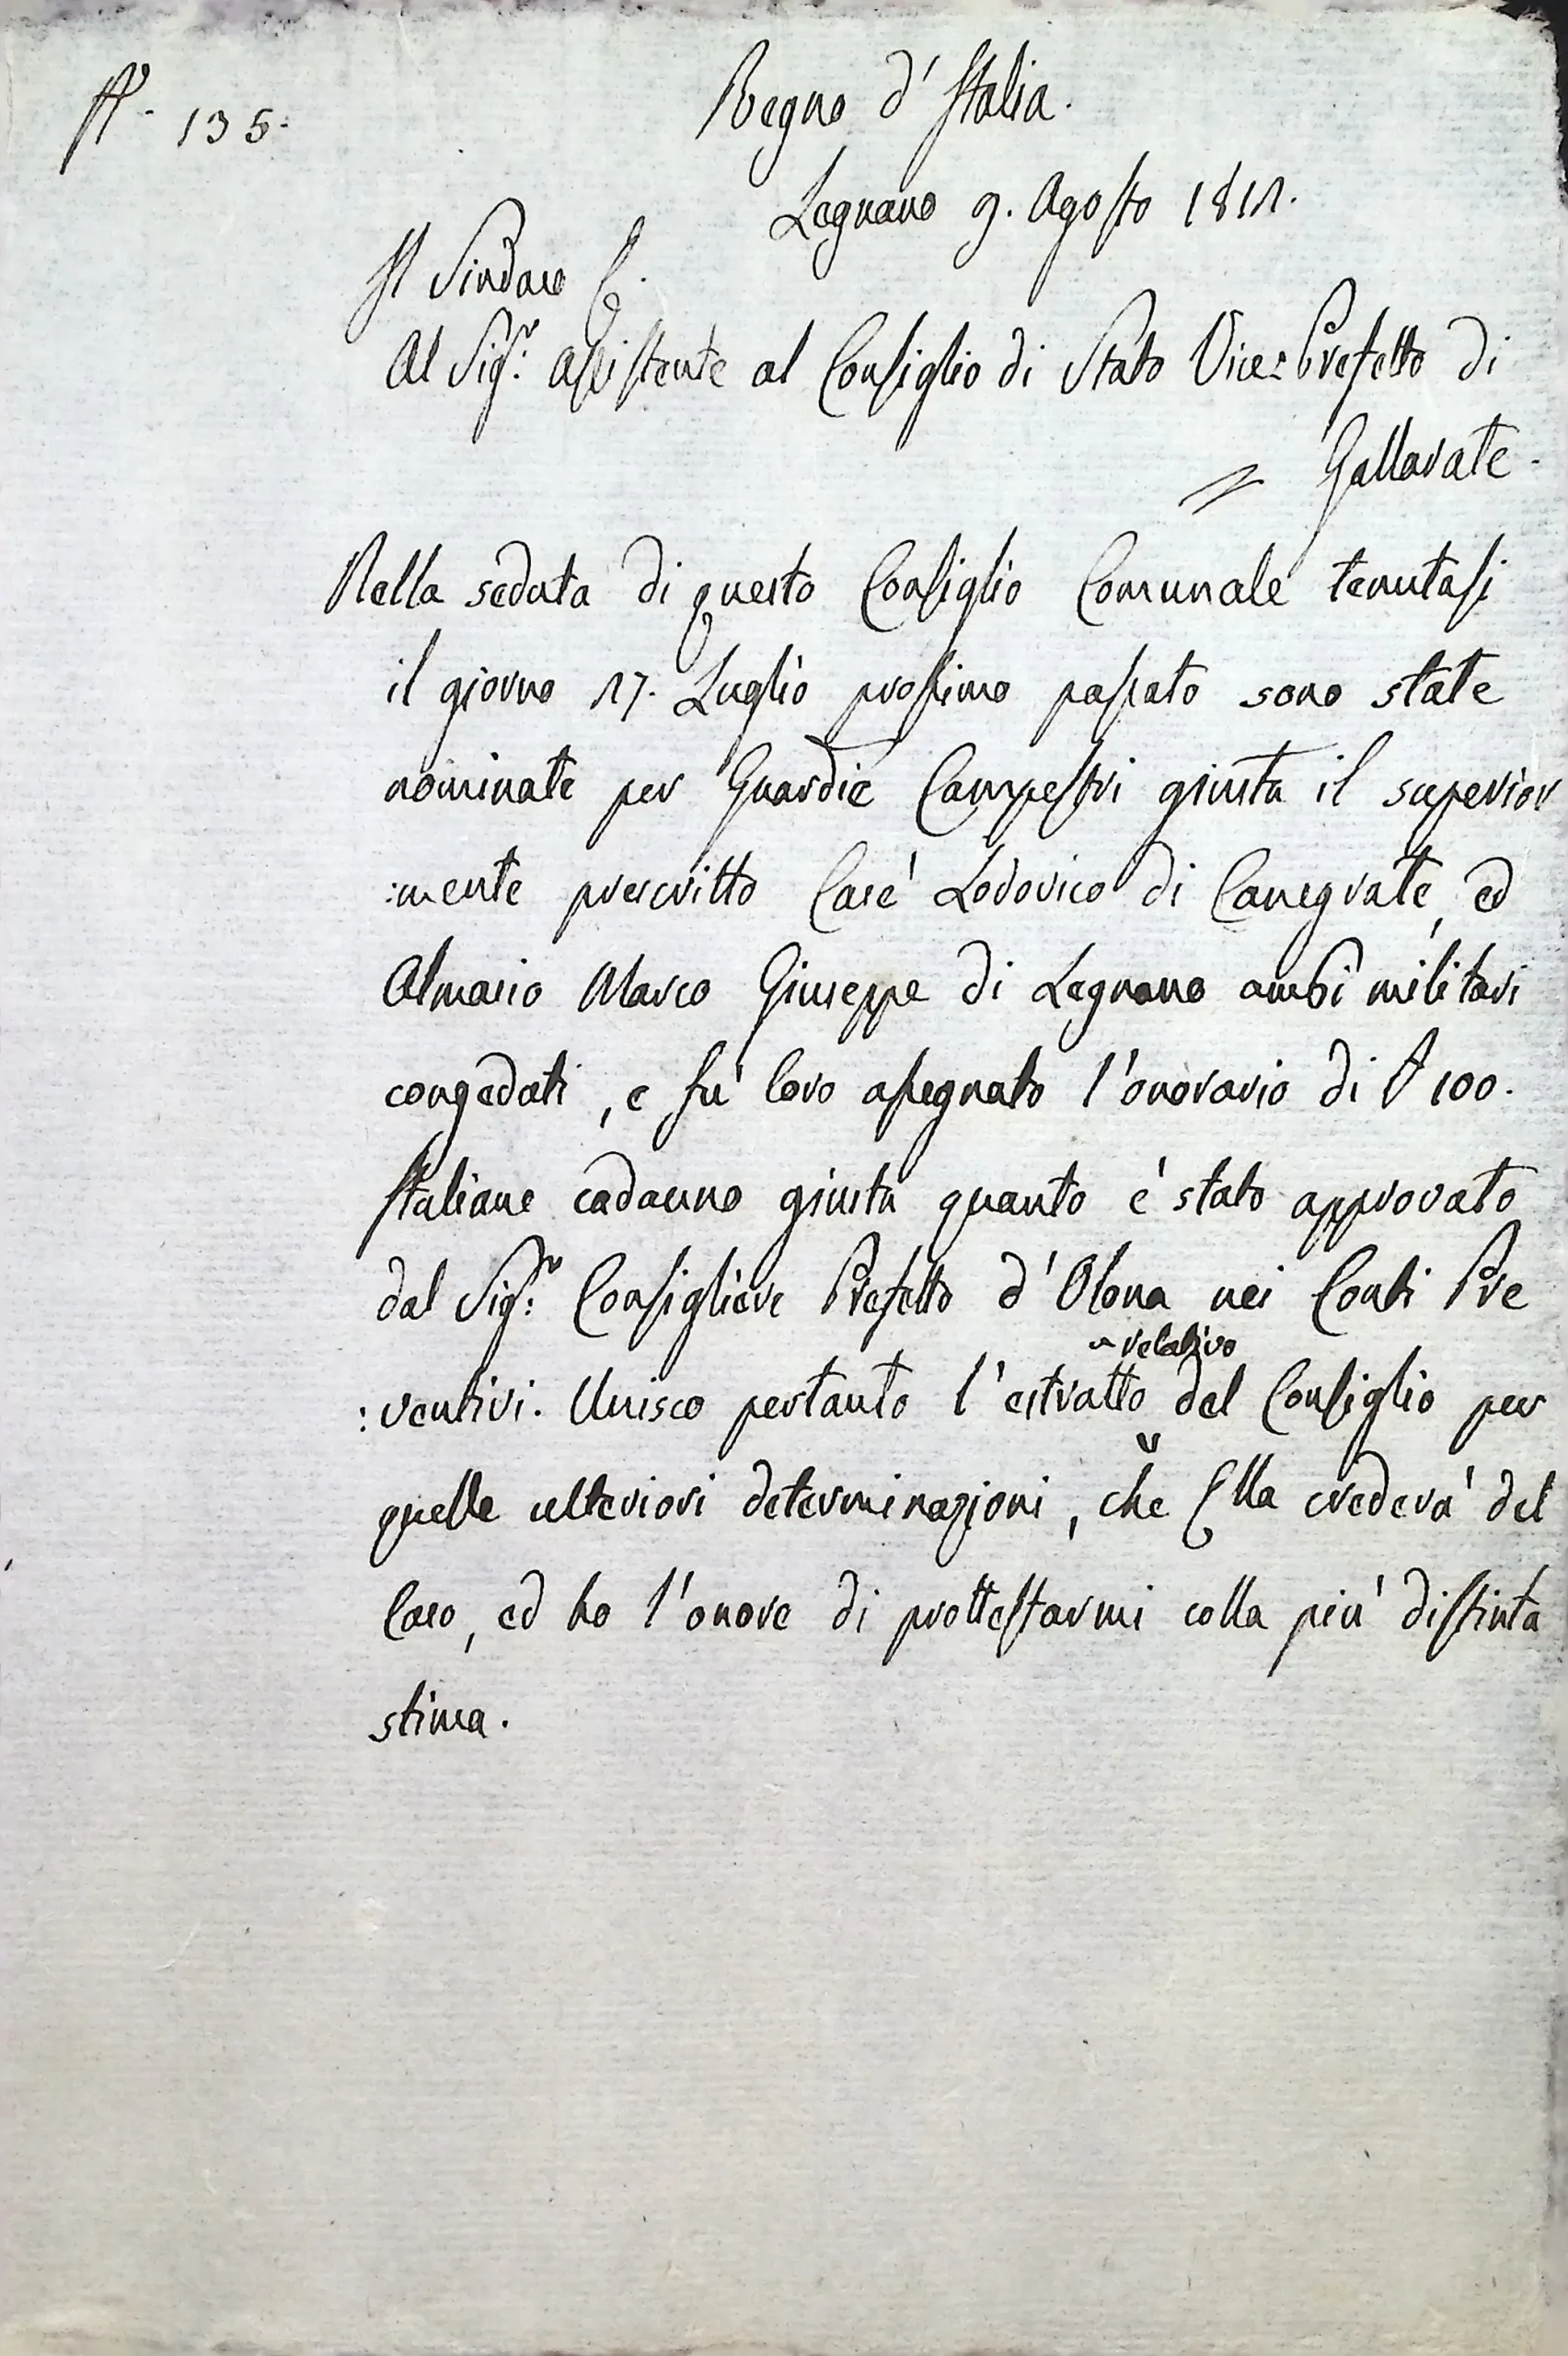 N. 135.
Regno d'Italia.
Legnano 9. Agosto 1811.
Il Sindaco
Al Sigr. Assistente al Consiglio di Stato Vice=Prefetto di
Gallarate.
Nella seduta di questo Consiglio Comunale tenutasi
il giorno 17. Luglio prossimo passato sono state
nominate per Guardie Campestri giusta il superior
:mente prescritto Casè Lodovico di Canegrate, ed
Almasio Marco Giuseppe di Legnano ambi militari
congedati, e fù loro assegnato l'onorario di £ 100.
Italiane cadauno giusta quanto è stato approvato
dal Sigr. Consigliere Prefetto d'Olona nei Conti Pre
relativo
:ventivi. Unisco pertanto l'estratto del Consiglio per
quelle ulteriori determinazioni, che Ella crederà del
Caso, ed ho l'onore di prottestarmi colla più distinta
stima.